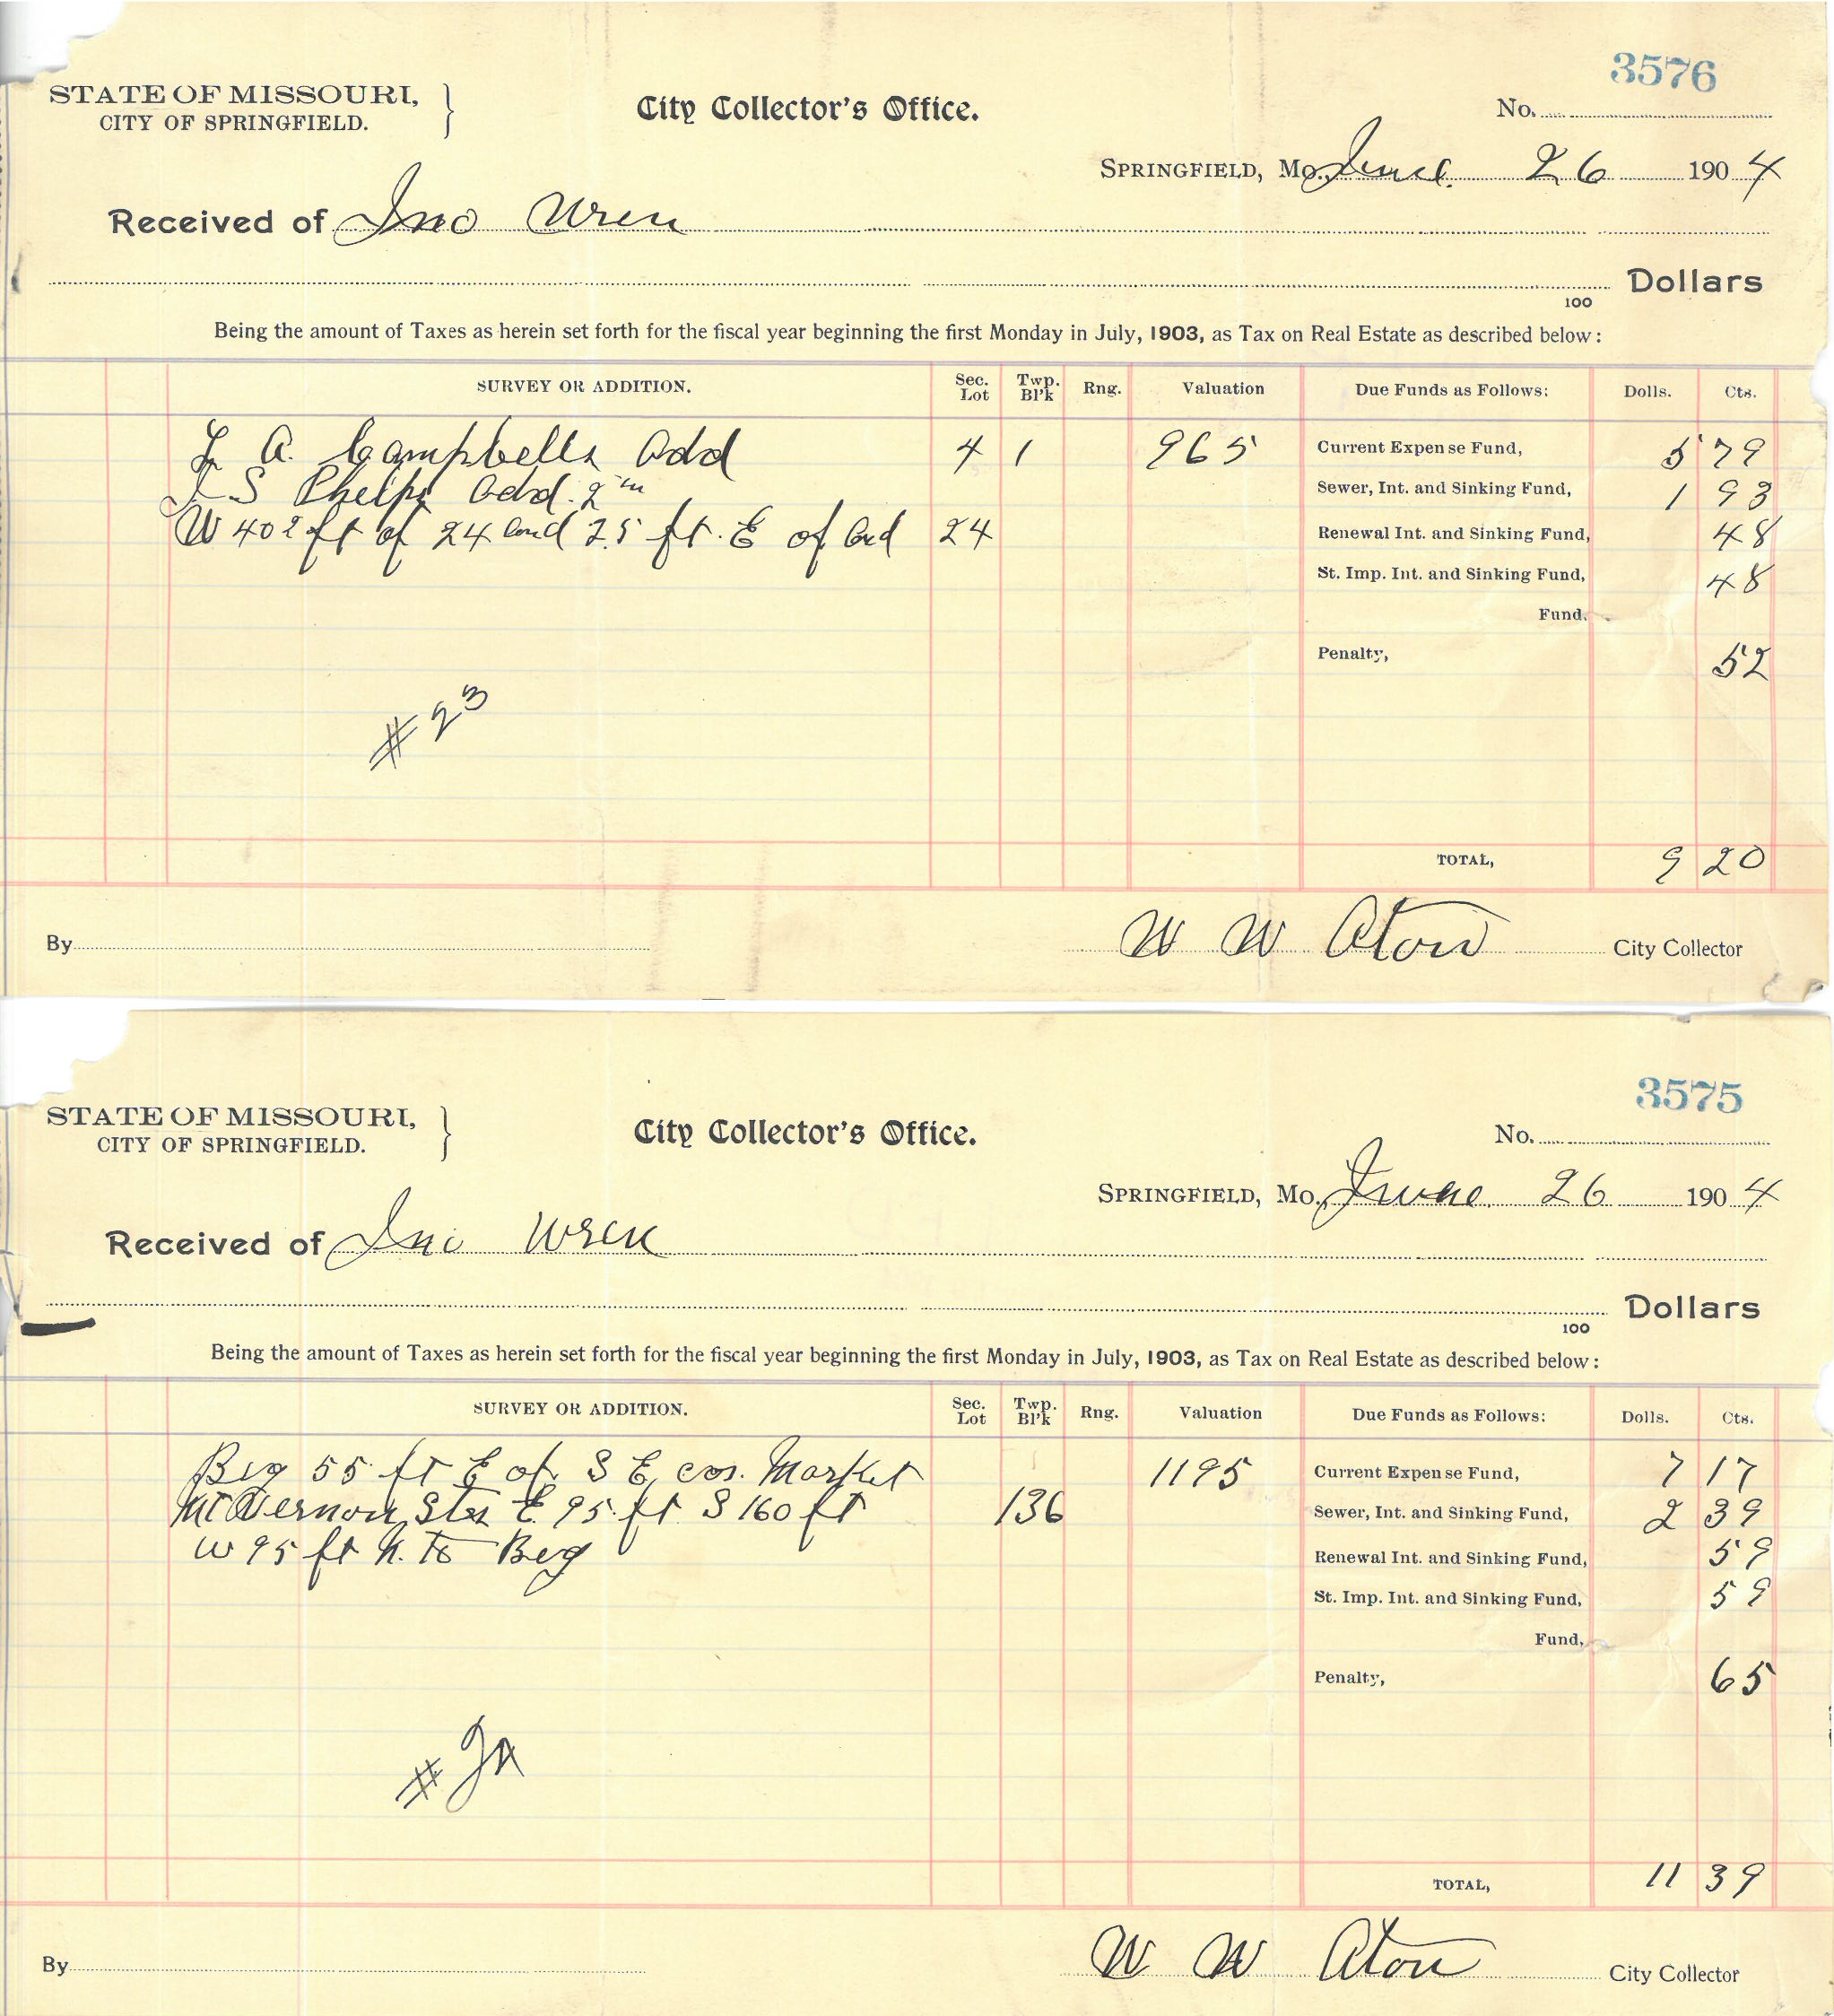 3576
STATE OF MISSOURI,
CITY OF SPRINGFIELD.
City Collector's Office.
No.
SPRINGFIELD, Mo. June 26 1904
Received of Jno Wren
Dollars
100
Being the amount of Taxes as herein set forth for the fiscal year beginning the first Monday in July, 1903, as Tax on Real Estate as described below:
SURVEY OR ADDITION. Sec. Lot Twp. Bl'k Rng. Valuation Due Funds as Follows: Dolls. Cts.
L A. Campbells Add 4 1 965 Current Expense Fund, 5 79
S Phelps Add. 2 Sewer, Int. and Sinking Fund, 1 93
W 402 ft of 24 and 25 ft. E of and 24 Renewal Int. and Sinking Fund, 48
St. Imp. Int. and Sinking Fund, 48
Fund,
Penalty, 52
# 23
TOTAL, 9 20
By W W Aton City Collector
3575
STATE OF MISSOURI,
CITY OF SPRINGFIELD.
City Collector's Office.
No.
SPRINGFIELD, Mo. June 26 1904
Received of Jno Wren
Dollars
100
Being the amount of Taxes as herein set forth for the fiscal year beginning the first Monday in July, 1903, as Tax on Real Estate as described below:
SURVEY OR ADDITION. Sec. Lot Twp. Bl'k Rng. Valuation Due Funds as Follows: Dolls. Cts.
Beg 55 ft E of S E cor. Market 1195 Current Expense Fund, 7 17
Mt Vernon Sts E 95 ft S 160 ft 136 Sewer, Int. and Sinking Fund, 2 39
W 95 ft N. to Beg Renewal Int. and Sinking Fund, 59
St. Imp. Int. and Sinking Fund, 59
Fund,
Penalty, 65
#
TOTAL, 11 39
By W W Aton City Collector